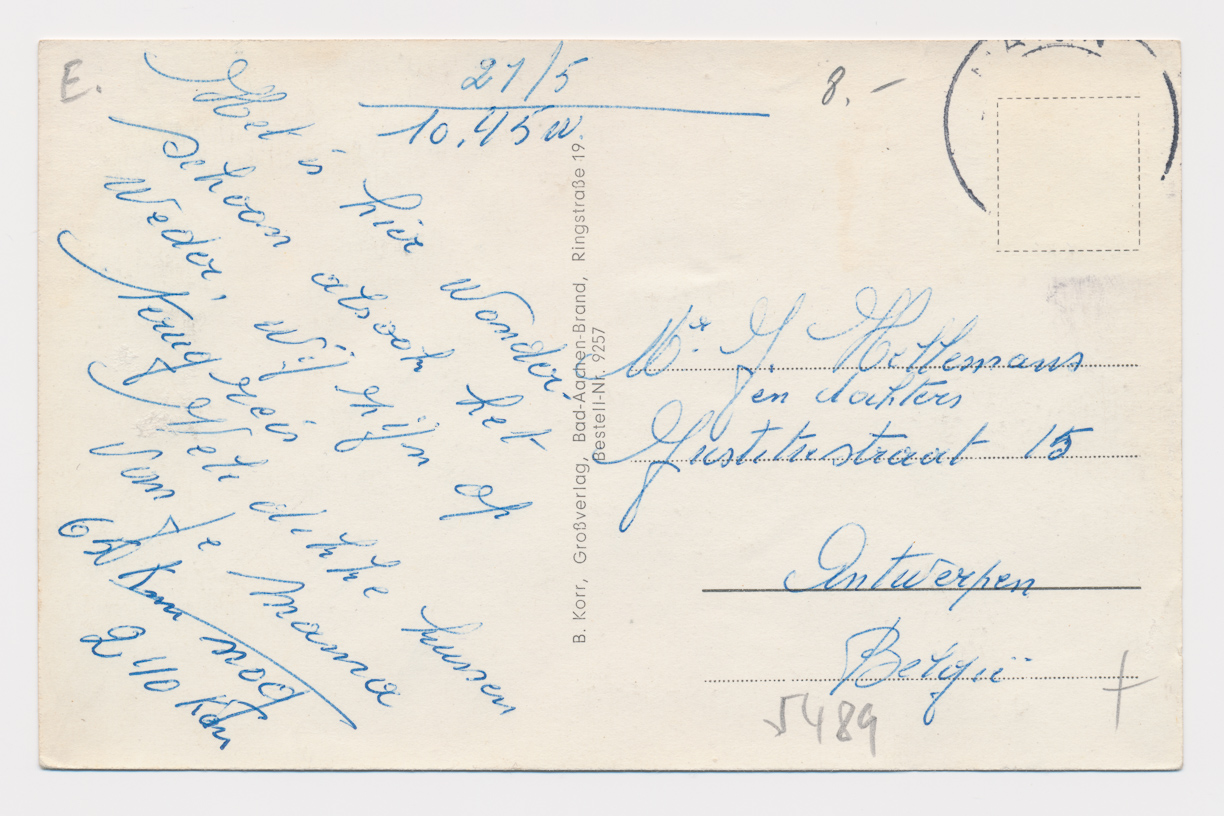 E.
21/5
10.45 u.
8.-
Het is hier wonder
schoon alsook het
Weder, wij zijn op
Terug reis
Met dikke kussen
Van Je Mama
Km nog
240 Km
B. Korr, Großverlag, Bad-Aachen-Brand, Ringstraße 19.
Bestell-Nr. 9257
Mr J. Hellemans
en dochters
Justitiestraat 15
Antwerpen
België
5489